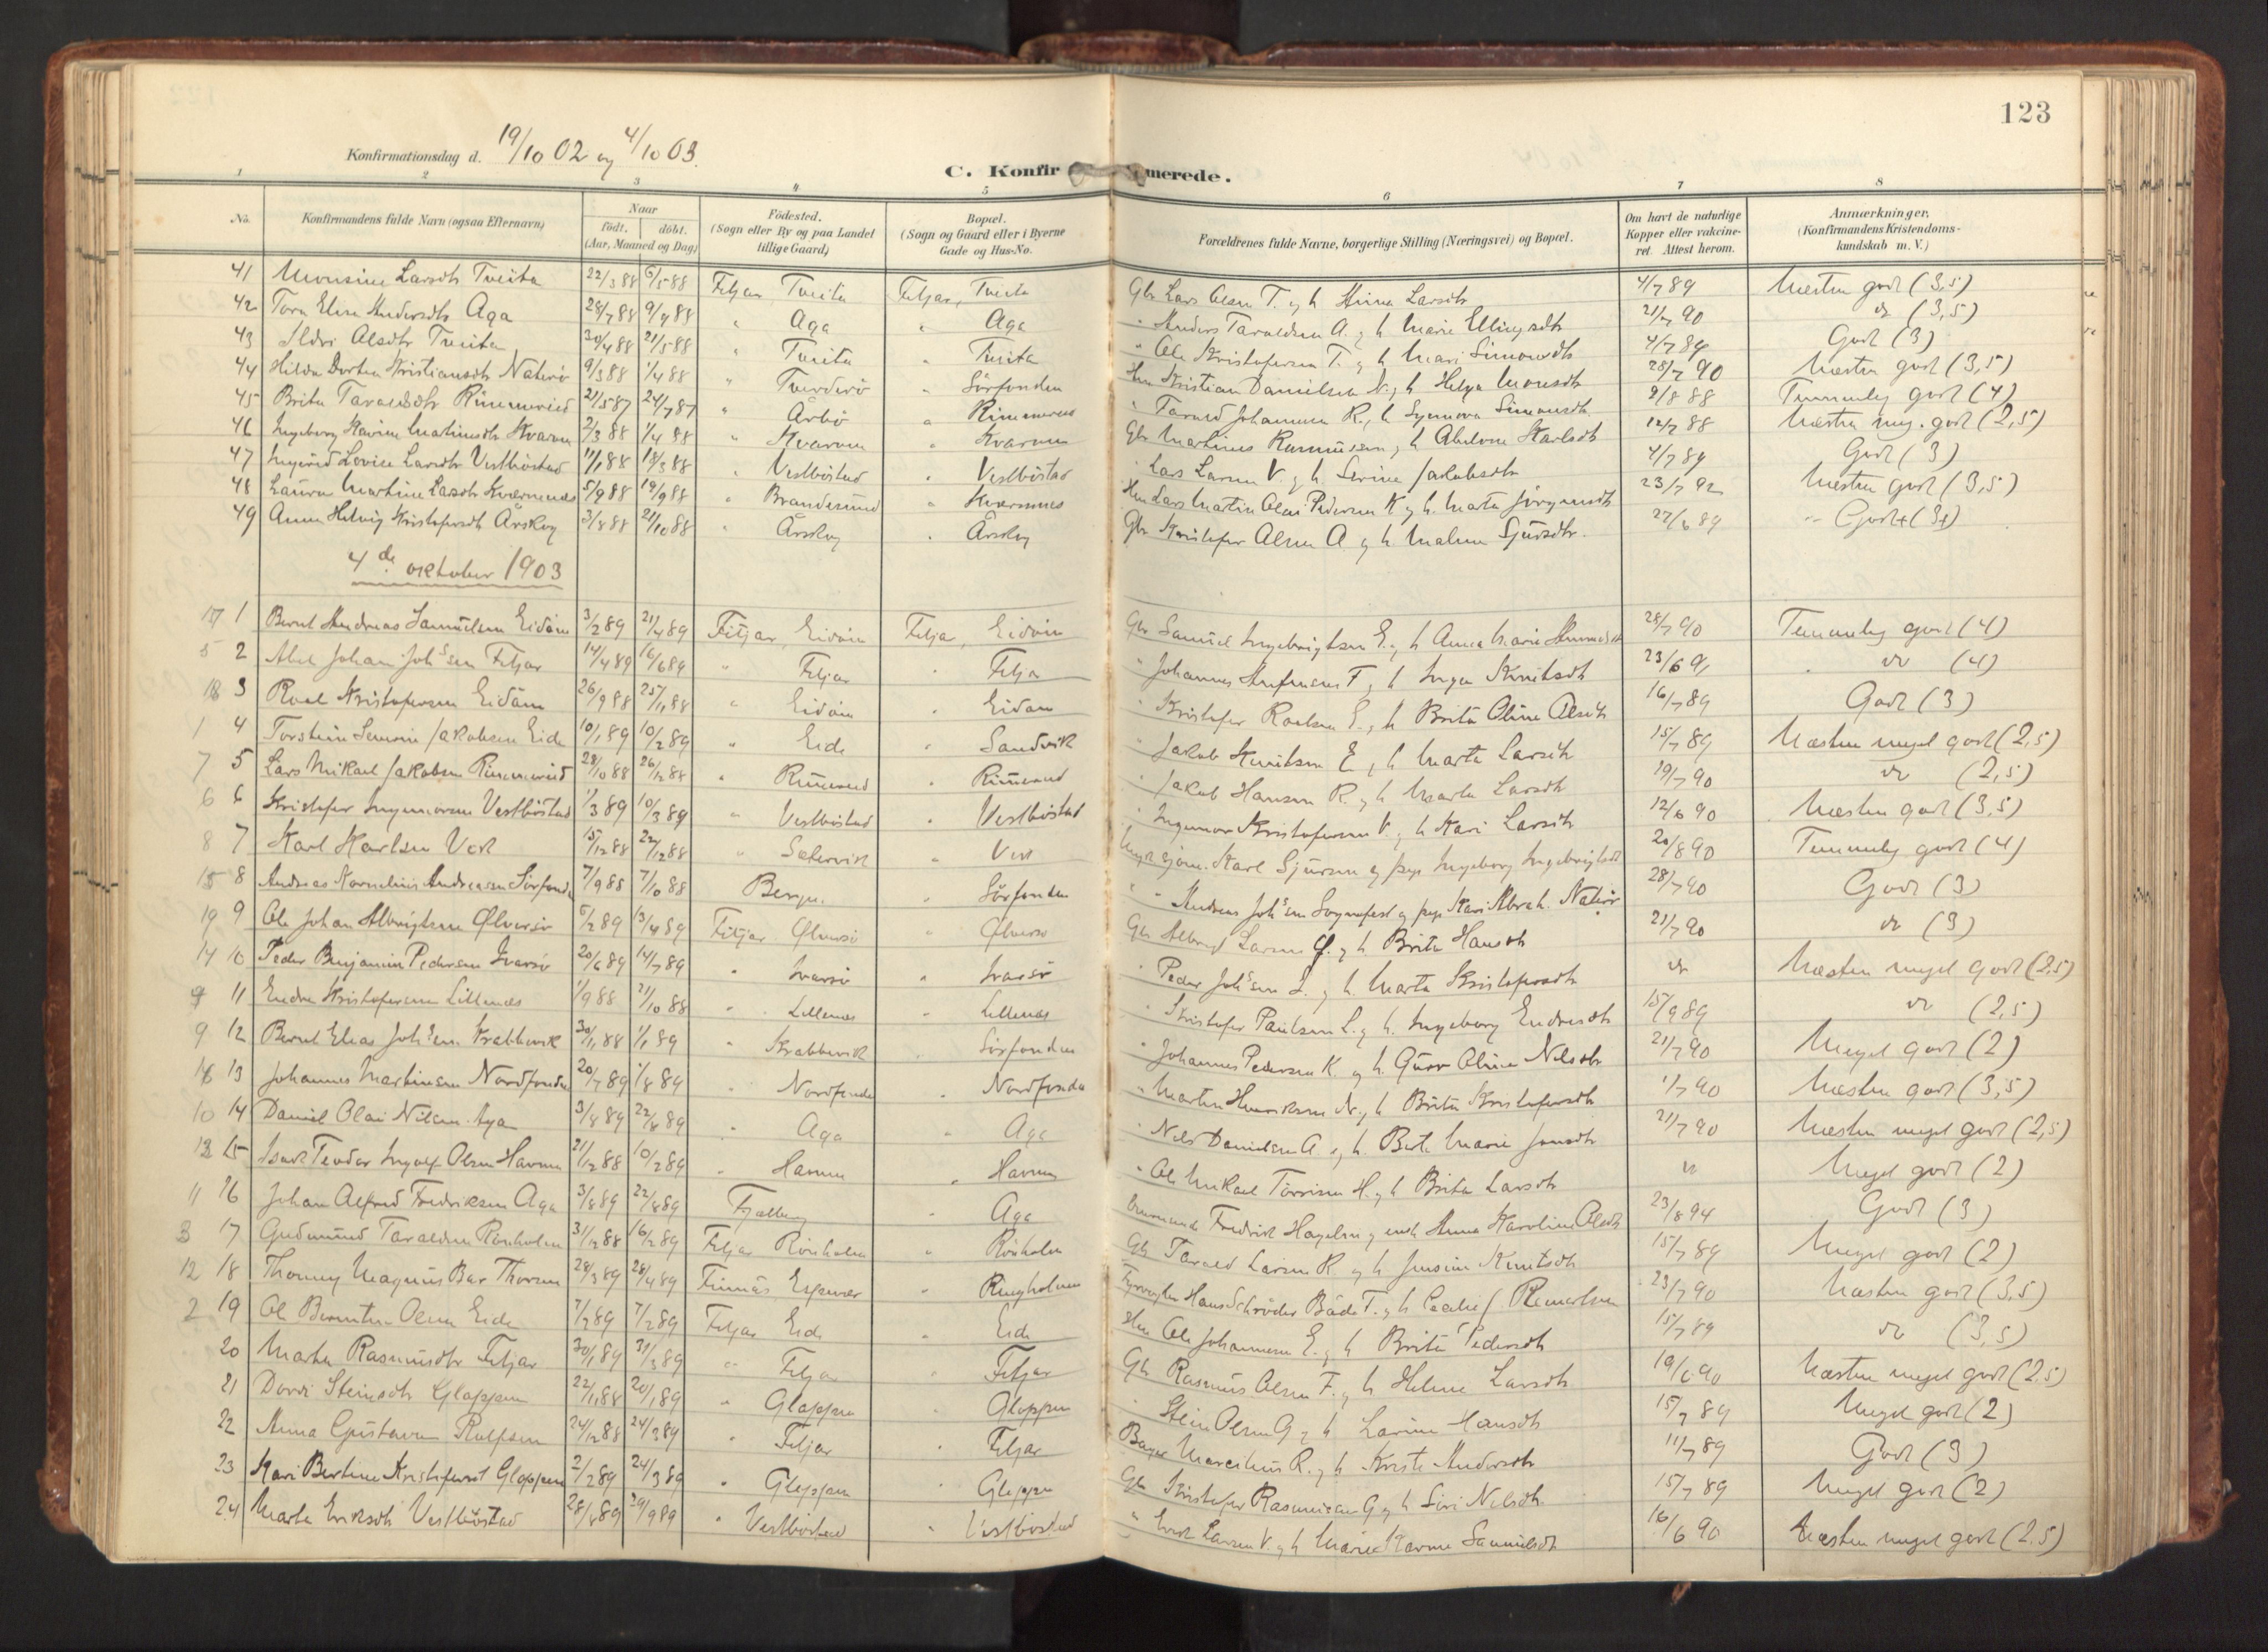 123
Konfirmationsdag d. 19/10 02 og 4/10 03.
C. Konfirmerede.
1 2 3 4 5 6 7 8
No. Konfirmandens fulde Navn (ogsaa Efternavn) Naar födt. döbt. (Aar, Maaned og Dag) Födested. (Sogn eller By og paa Landet tillige Gaard) Bopæl. (Sogn og Gaard eller i Byerne Gade og Hus-No. Forældrenes fulde Navne, borgerlige Stilling (Næringsvei) og Bopæl. Om havt de naturlige Kopper eller vakcineret. Attest herom. Anmærkninger. (Konfirmandens Kristendomskundskab m. V.)
41 Larsdtr Tveita 22/3 88 6/5 88 Fitjar Tveita Fitjar, Tveita Gbr Lars Olsen T. og h Stina Larsdtr 4/7 89 Næsten godt (3,5)
42 Tora Elisa Andersdtr Aga 28/7 88 9/9 88 " Aga " Aga " Anders Taraldsen A. og h Marie Ellingsdtr 21/7 90 do (3,5)
43 Ildri Olsdtr Tveita 30/4 88 21/5 88 " Tveita " Tveita " Ole Kristofersen T. og h Mari Simonsdtr 4/7 89 Godt (3)
44 Hilda Dortea Kristiansdtr Naterö 9/3 88 1/4 88 " " Sörfonden Hm Kristian Danielsen N. og h Helga Monsdtr 28/7 90 Næsten godt (3,5)
45 Brita Taraldsdtr Rimmereid 21/5 87 24/7 87 " Årbö " Rimmereid " Tarald Johannesen R., h Synnova Simonsdtr 9/8 88 Temmelig godt (4)
46 Ingeborg Karine Martinusdtr Kvarven 2/3 88 1/4 88 " Kvarven " Kvarven Gbr Martinus Rasmussen, h Abelone Karlsdtr 12/7 88 Næsten meg. godt (2,5)
47 Ingerid Lovise Larsdtr Vestböstad 11/1 88 18/3 88 " Vestböstad " Vestböstad " Lars Larsen V. og h. Serine Jakobsdtr 4/7 89 Godt (3)
48 Laura Martine Larsdtr Kværnenes 5/9 88 19/9 88 " Brandesund " Kværnenes Hm Lars Martin Olai Pedersen K og h. Marta Jörgensdtr 23/7 92 Næsten godt (3,5)
49 Anna Helvig Kristofersdtr Årskog 3/8 88 21/10 88 " Årskog " Årskog Gbr Kristofer Olsen A og h. Malene Sjursdtr. 27/6 89 Godt+ (3+)
4de oktober 1903
17 1 Bernt Andreas Samuelsen Eidöin 3/2 89 21/4 89 Fitjar, Eidöin Fitja, Eidöin Gbr Samuel Ingebrigtsen E. og h Anna Marie 28/7 90 Temmelig godt (4)
5 2 Abel Johan Johssen Fitjar 14/4 89 16/6 89 " Fitjar " Fitja " Johannes T. og h Inga Knutsdtr 23/6 91 do (4)
18 3 Roel Kristofersen Eidöin 26/9 88 25/11 88 " Eidöin " Eidöin " Kristofer Roelsen E., h Brita Oline Olsdtr 16/7 89 Godt (3)
1 4 Torstein Severin Jakobsen Eide 10/1 89 10/2 89 " Eide " Sandvik " Jakob Knutsen E, h Marta Larsdtr 15/7 89 Næsten meget godt (2,5)
7 5 Lars Mikael Jakobsen Rimmereid 28/10 88 26/12 88 " Rimmereid " Rimmereid " Jakob Hansen R. og h Marta Larsdtr 19/7 90 do (2,5)
6 6 Kristofer Ingemorsen Vestböstad 1/3 89 10/3 89 " Vestböstad " Vestböstad " Ingemor Kristofersen V. og h Kari Larsdtr 12/6 90 Næsten godt (3,5)
8 7 Karl Karlsen Vik 15/12 88 22/12 88 " Sætervik " Vik Ungk. Karl Sjursen og pige Ingeborg Ingebrigtsdtr 20/8 90 Temmelig godt (4)
15 8 Andreas Kornelius Andreassen Sörfonden 7/9 88 7/10 88 Bergen " Sörfonden " " Andreas Johssen Sognefest og pige Kari Abrah. Naterö 28/7 90 Godt (3)
19 9 Ole Johan Albrigtsen Ølversö 5/2 89 13/4 89 Fitjar Ølversö " Ølversö Gbr Albrigt Larsen Ø. og h Brita Hansdtr 21/7 90 do (3)
14 10 Peder Benjamin Pedersen Ivarsö 20/6 89 14/7 89 " Ivarsö " Ivarsö " Peder Johssen I. og h. Marta Kristofersdtr do Næsten meget godt (2,5)
4 11 Endre Kristofersen Lillenes 1/9 88 21/10 88 " Lillenes " Lillenes " Kristofer Paulsen L. og h. Ingeborg Endresdtr 15/9 89 do (2,5)
9 12 Bernt Elias Johssen Krabbevik 30/11 88 1/1 89 " Krabbevik " Sörfonden " Johannes Pedersen K. og h. Guro Oline Nelsdtr 21/7 90 Meget godt (2)
16 13 Johannes Martinsen Nordfonden 20/7 89 1/8 89 " Nordfonden " Nordfonden " Martin Henriksen N., h Brita Kristofersdtr 1/7 90 Næsten godt (3,5)
10 14 Daniel Olai Nilsen Aga 3/8 89 22/8 89 " Aga " Aga " Nels Danielsen A og h. Berte Marie Jonsdtr 21/7 90 Næsten meget godt (2,5)
13 15 Isak Teodor Ingolf Olsen Havnen 21/12 88 10/2 89 " Havnen " Havnen " Ole Mikael Törrisen H. og h Brita Larsdtr do Meget godt (2)
11 16 Johan Alfred Fredriksen Aga 3/8 89 22/8 89 Fjælberg " Aga Fredrik Hagelin og Anna Karoline Olsdtr 23/8 94 Godt (3)
3 17 Gudmund Taraldsen Rönholm 31/12 88 16/2 89 Fitjar Rönholm " Rönholm Gbr Tarald Larsen R og h. Jensine Knutsdtr 15/7 89 Meget godt (2)
12 18 Thonny Magnus Bar Thorsen 28/3 89 28/4 89 Finnås Espevær " Ringholmen Fyrvogter Hans Schröder Både T. og h Cecilie J. 23/7 90 Næsten godt (3,5)
2 19 Ole Berentin Olsen Eide 7/2 89 7/2 89 Fitjar Eide " Eide Hm Ole Johannesen E. og h Brita Pedersdtr 15/7 89 do (3,5)
20 Marta Rasmusdtr Fitjar 30/1 89 31/3 89 " Fitjar " Fitjar Gbr Rasmus Olsen F. og h Helene Larsdtr 19/6 90 Næsten meget godt (2,5)
21 Dorri Steinsdtr Gloppen 22/11 88 20/1 89 " Gloppen " Gloppen " Stein Olsen G og h Larine Hansdtr 15/7 89 Meget godt (2)
22 Anna Gustava Rolfsen 24/12 88 24/3 89 " Fitjar " Fitjar Bager Marselius R. og h Kriste Andersdtr 11/7 89 Godt (3)
23 Kari Bertine Kristofersdt Gloppen 2/2 89 24/3 89 " Gloppen " Gloppen Gbr Kristofer Rasmussen G og h Siri Nelsdtr 15/7 89 Meget godt (2)
24 Marta Eriksdtr Vestböstad 28/8 89 29/9 89 " Vestböstad " Vestböstad " Erik Larsen V. og h Marie Karine Samuelsdtr 16/6 90 Næsten meget godt (2,5)